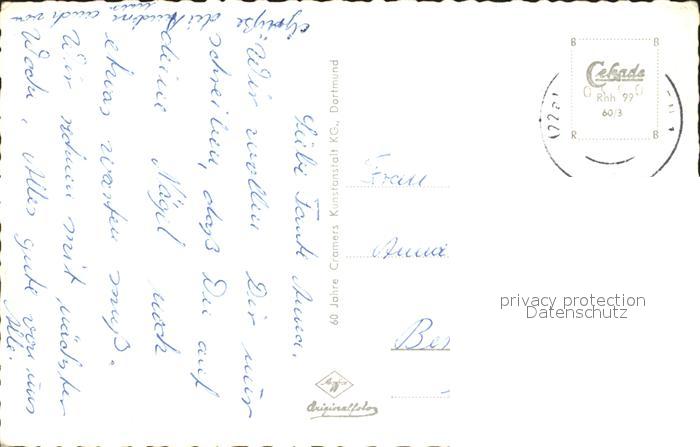 Liebe Tante Anna.
Wir wollen Dir nur
schreiben, daß Du auf
deine Nägel noch
etwas warten muß.
Wir kommen mit nächster
Woche, Alles gute von uns
Alle.
Grüße
60 Jahre Cramers Kunstanstalt KG., Dortmund
Frau
Anna
Be
Originalfoto
B B
Cekade
Rhh 99
60/3
R B
privacy protection
Datenschutz